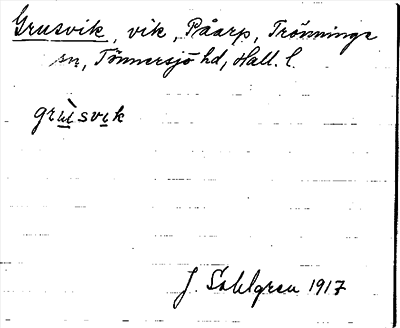 Grusvik, vik, Påarp, Trönninge
sn, Tönnersjö hd, Hall. l.
grùsvik
J. Sahlgren 1917